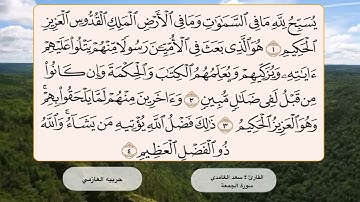 يُسَبِّحُ لِلَّهِ مَا فِي السَّمَٰوَٰتِ وَمَا فِي الْأَرْضِ الْمَلِكِ الْقُدُّوسِ الْعَزِيزِ
الْحَكِيمِ ١ هُوَ الَّذِي بَعَثَ فِي الْأُمِّيِّينَ رَسُولًا مِّنْهُمْ يَتْلُوا عَلَيْهِمْ
ءَايَٰتِهِ وَيُزَكِّيهِمْ وَيُعَلِّمُهُمُ الْكِتَٰبَ وَالْحِكْمَةَ وَإِن كَانُوا
مِن قَبْلُ لَفِي ضَلَٰلٍ مُّبِينٍ ٢ وَءَاخَرِينَ مِنْهُمْ لَمَّا يَلْحَقُوا بِهِمْ
وَهُوَ الْعَزِيزُ الْحَكِيمُ ٣ ذَٰلِكَ فَضْلُ اللَّهِ يُؤْتِيهِ مَن يَشَاءُ وَاللَّهُ
ذُو الْفَضْلِ الْعَظِيمِ ٤
القارئ : سعد الغامدي
سورة الجمعة
حربيه العازمي